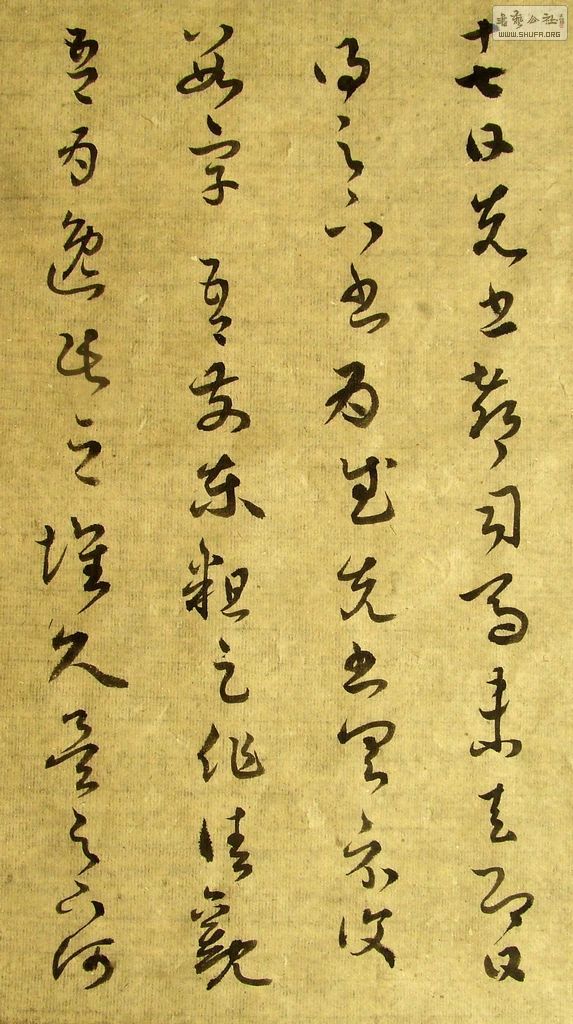 十七日先書郗司馬未去即日
得足下書為慰先書具示復
數字 吾前東粗足作佳觀
吾為逸民之懷久矣足下何
書藝公社
WWW.SHUFA.ORG